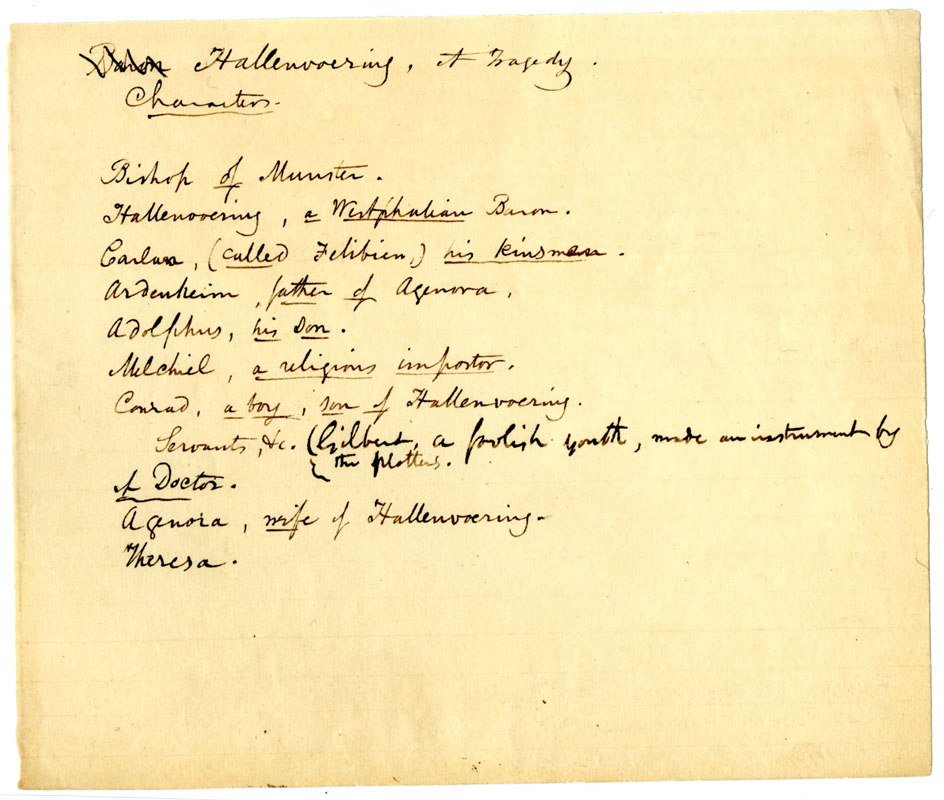 Baron Hallenvoering, A Tragedy.
Characters.
Bishop of Munster.
Hallenvoering, a Westphalian Baron.
Carlan, (called Felibien,) his kinsman.
Ardenheim, father of Agenora.
Adolphus, his son.
Melchiel, a religious impostor.
Conrad, a boy, son of Hallenvoering.
Servants, &c. (Gilbert, a foolish youth, made an instrument by
the plotters.
A Doctor.
Agenora, wife of Hallenvoering.
Theresa.